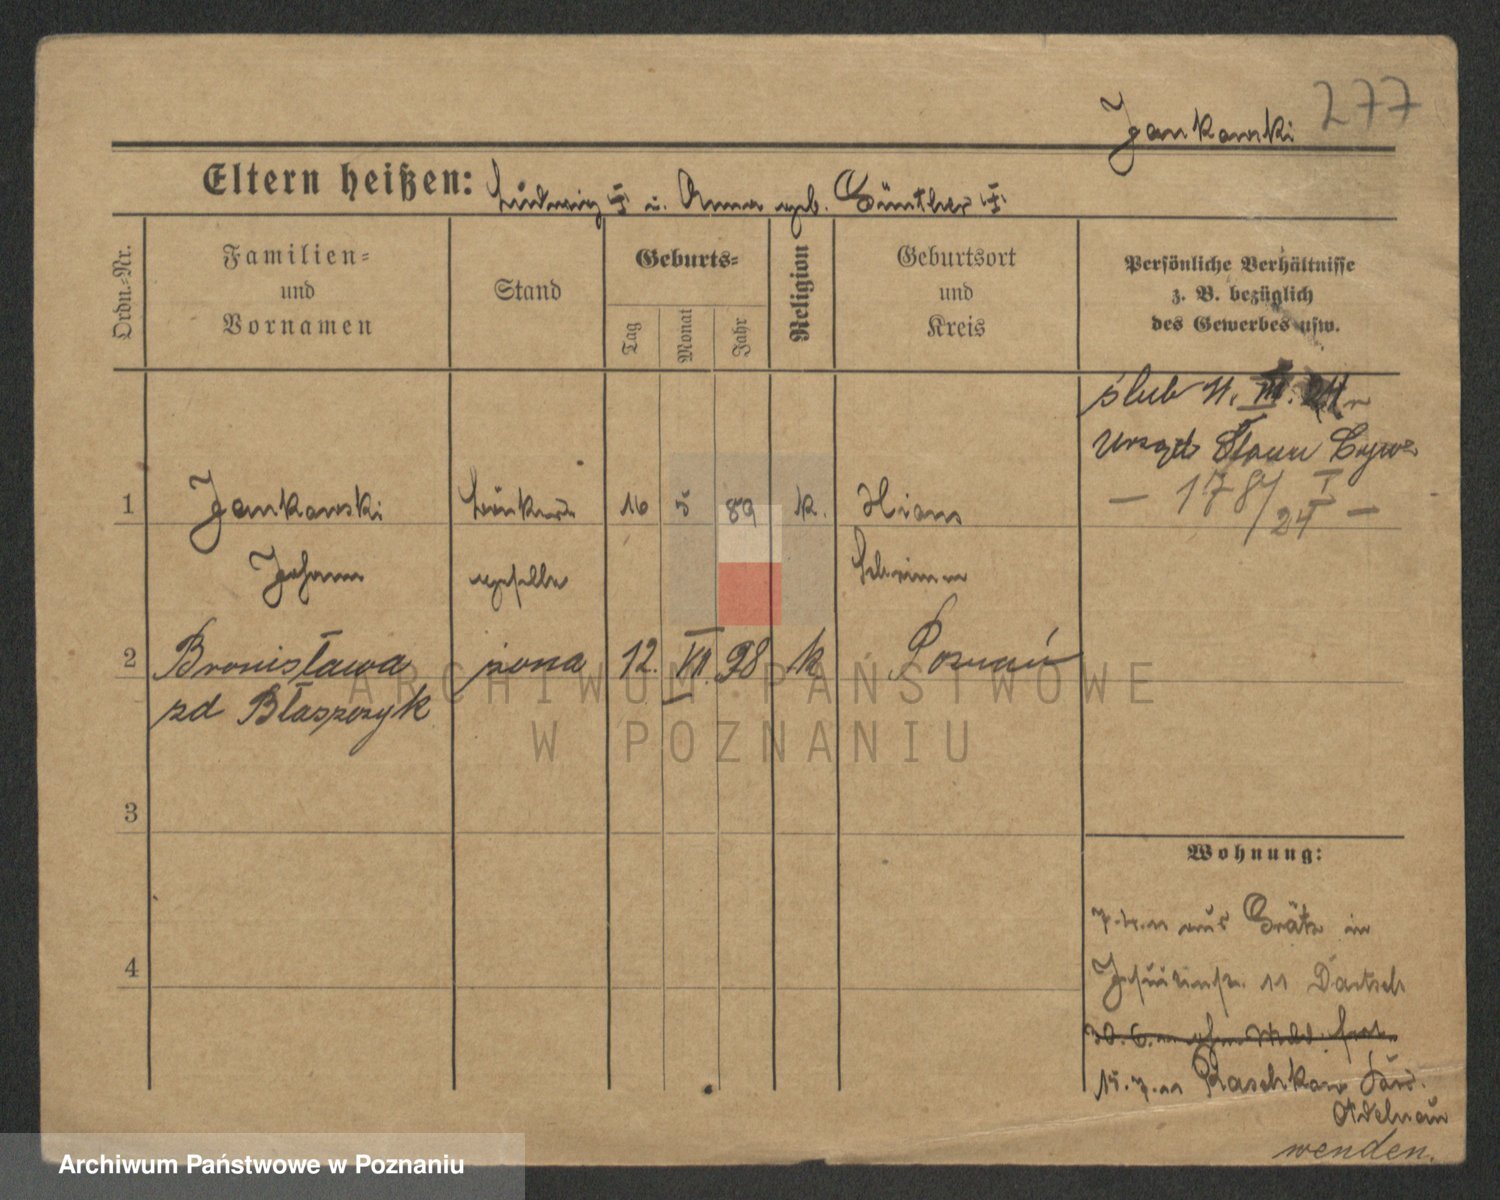 277
Jankowski
Eltern heißen: Ludwig † u. Anna geb. Günther †
Ordn.-Nr.
Familien-
und
Vornamen
Stand
Geburts-
Tag
Monat
Jahr
Religion
Geburtsort
und
Kreis
Persönliche Verhältnisse
z. B. bezüglich
des Gewerbes usw.
ślub 11. III. 24 r
Urząd Stanu Cyw.
— 178/I 24 —
1 Jankowski 16 5 89 k.
Johann geselle Schrimm
2 Bronisława żona 12. VII. 98 k Poznań
zd Błaszczyk
3
4
Wohnung:
7.4.11 aus Grätz in
Jesuitenstr. 11 Bartsch
15.7.11 Raschkow
Adelnau
wenden.
ARCHIWUM PAŃSTWOWE
W POZNANIU
Archiwum Państwowe w Poznaniu